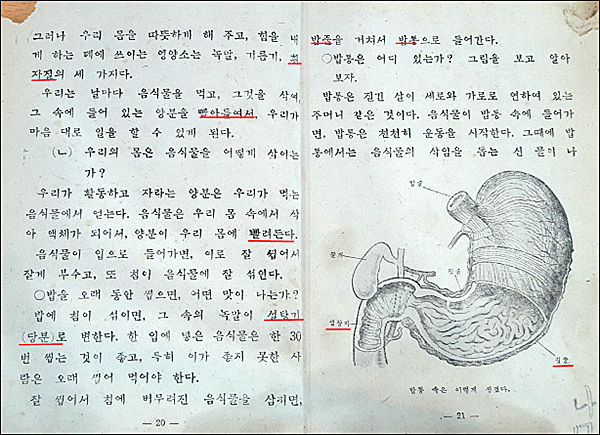 (그러나 우리 몸을 따뜻하게 해 주고, 힘을 내
게 하는 데에 쓰이는 영양소는 녹말, 기름기, 흰
자질의 세 가지다.
우리는 날마다 음식물을 먹고, 그것을 삭여,
그 속에 들어 있는 양분을 빨아들여서, 우리가
마음 대로 일을 할 수 있게 된다.
(ㄴ) 우리의 몸은 음식물을 어떻게 삭이는
가?
우리가 활동하고 자라는 양분은 우리가 먹는
음식물에서 얻는다. 음식물은 우리 몸 속에서 삭
아 액체가 되어서, 양분이 우리 몸에 빨려든다.
음식물이 입으로 들어가면, 이로 잘 씹어서
잘게 부수고, 또 침이 음식물에 잘 섞인다.
○밥을 오래 동안 씹으면, 어떤 맛이 나는가?
밥에 침이 섞이면, 그 속의 녹말이 설탕기
(당분)로 변한다. 한 입에 넣은 음식물은 한 30
번 씹는 것이 좋고, 특히 이가 좋지 못한 사
람은 오래 씹어 먹어야 한다.
잘 씹어서 침에 버무려진 음식물을 삼키면,
— 20 —
밥줄을 거쳐서 밥통으로 들어간다.
○밥통은 어디 있는가? 그림을 보고 알아
보자.
밥통은 질긴 살이 세로와 가로로 연하여 있는
주머니 같은 것이다. 음식물이 밥통 속에 들어가
면, 밥통은 천천히 운동을 시작한다. 그때에 밥
통에서는 음식물의 삭임을 돕는 신 물이 나
밥줄
쓸개
샘창자
밥통 속은 이렇게 생겼다.
— 21 —